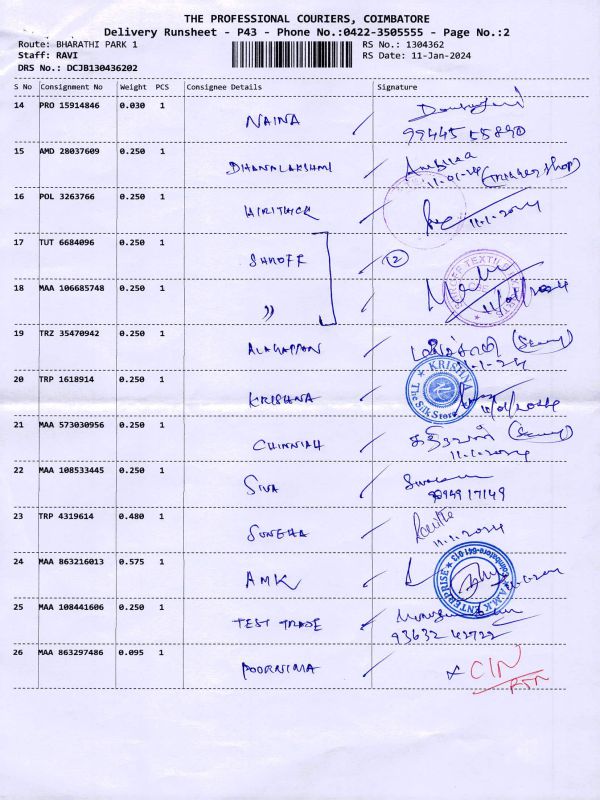 THE PROFESSIONAL COURIERS, COIMBATORE
Delivery Runsheet - P43 - Phone No.:0422-3505555 - Page No.:2
Route: BHARATHI PARK 1 RS No.: 1304362
Staff: RAVI RS Date: 11-Jan-2024
DRS No.: DCJB130436202
S No Consignment No Weight PCS Consignee Details Signature
14 PRO 15914846 0.030 1 NAINA
99445 55890
15 AMD 28037609 0.250 1 DHANALAKSHMI
11-01-24
16 POL 3263766 0.250 1 HIRITHICK 11.1.2024
17 TUT 6684096 0.250 1 SHROFF (2)
TEXTILE
18 MAA 106685748 0.250 1 〃
19 TRZ 35470942 0.250 1 ALAGAPPAN
20 TRP 1618914 0.250 1 KRISHNA
KRISHNA
The Silk Store
21 MAA 573030956 0.250 1 CHINNIAH
11.1.2024
22 MAA 108533445 0.250 1 SIVA
23 TRP 4319614 0.480 1 SUNEHA
11.1.2024
24 MAA 863216013 0.575 1 AMK
A.M.K ENTERPRISE Coimbatore-641 013
25 MAA 108441606 0.250 1 TEST TRADE
93632 42722
26 MAA 863297486 0.095 1 POORNIMA x CIN
RTN